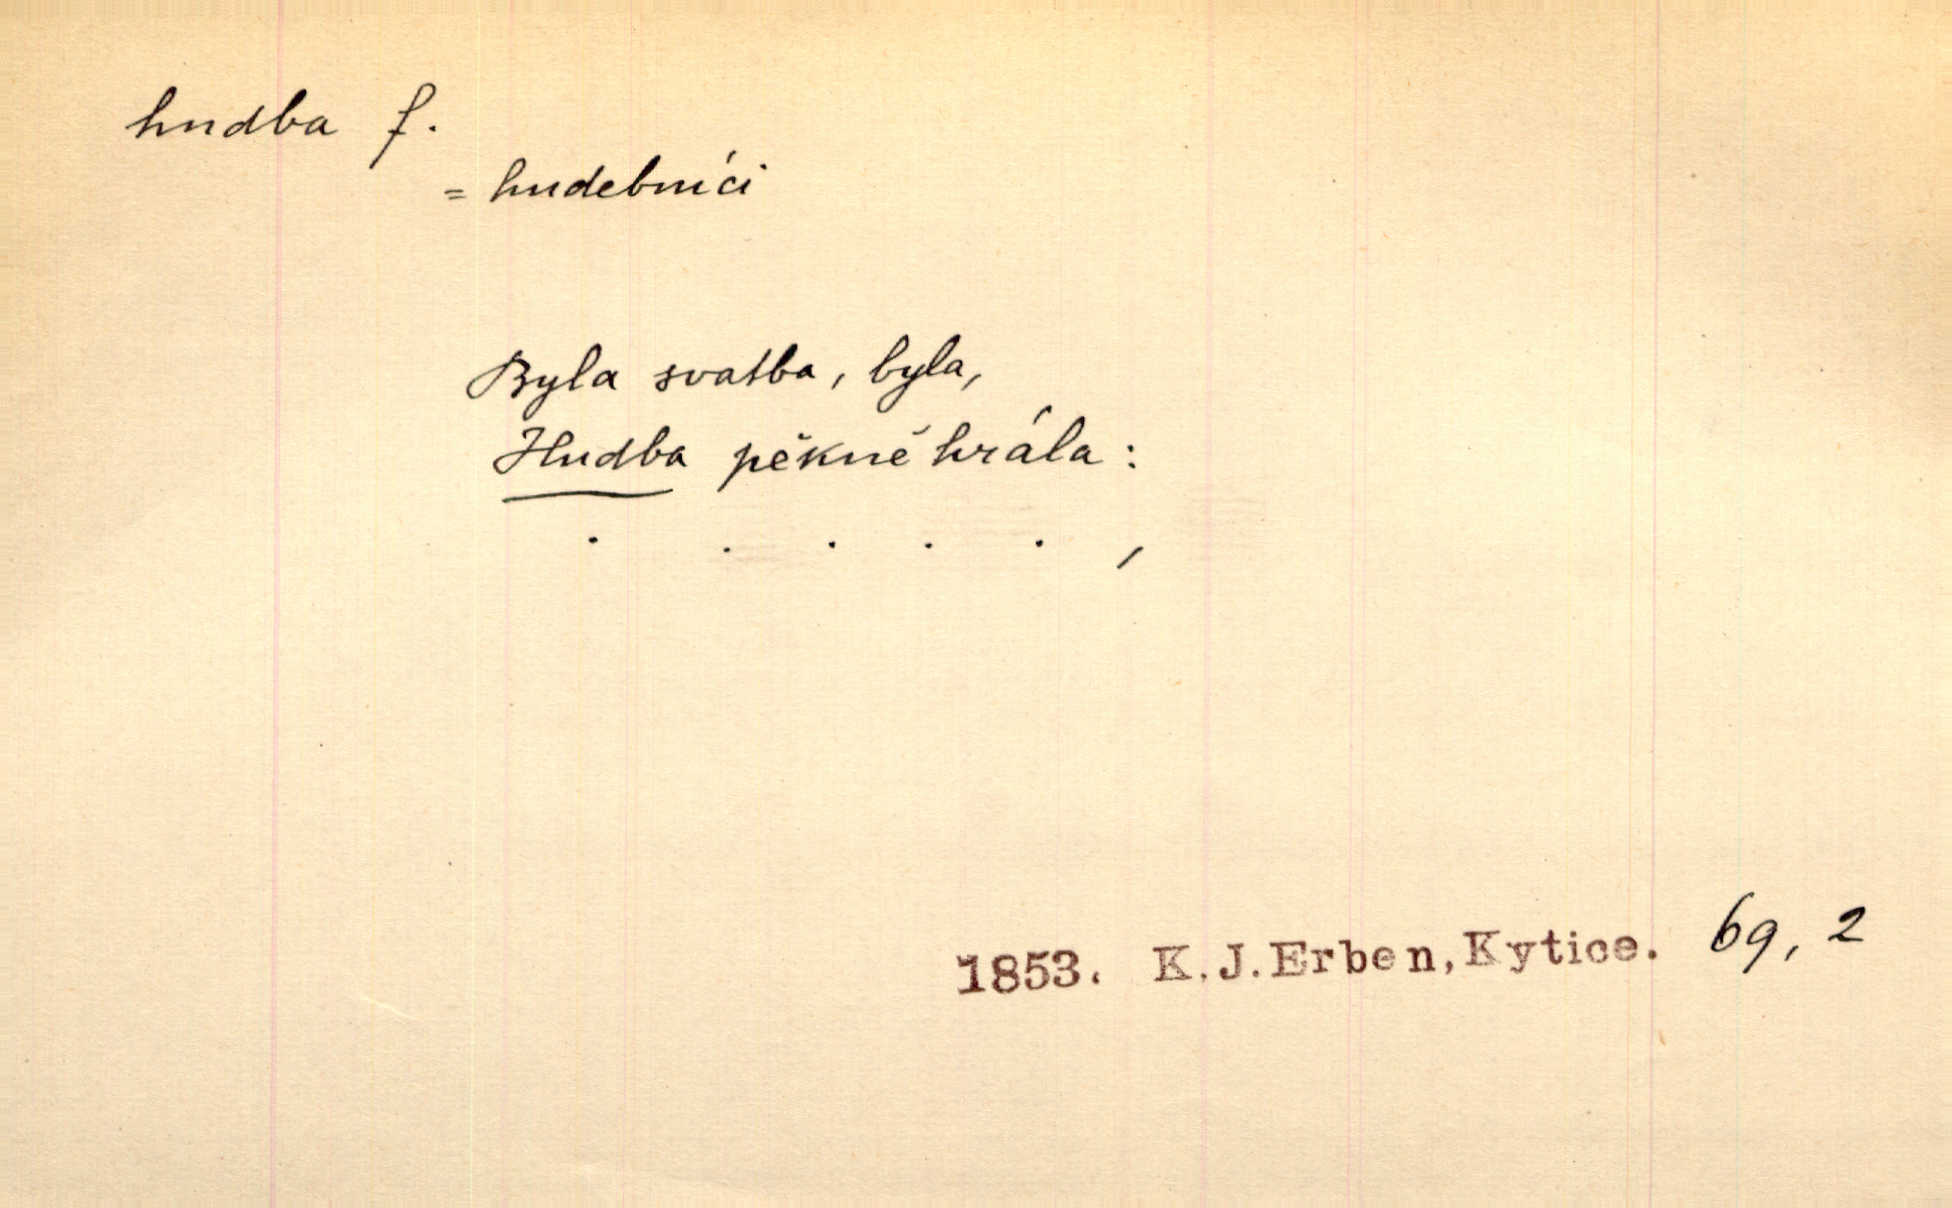 hudba f.
= hudebníci
Byla svatba, byla,
Hudba pěkně hrála:
. . . . . ,
1853. K.J.Erben,Kytice. 69, 2